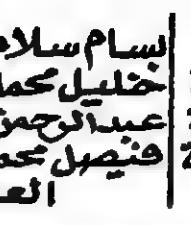 بسام سلام
خليل محمد
عبدالرحمن
فيصل محمد